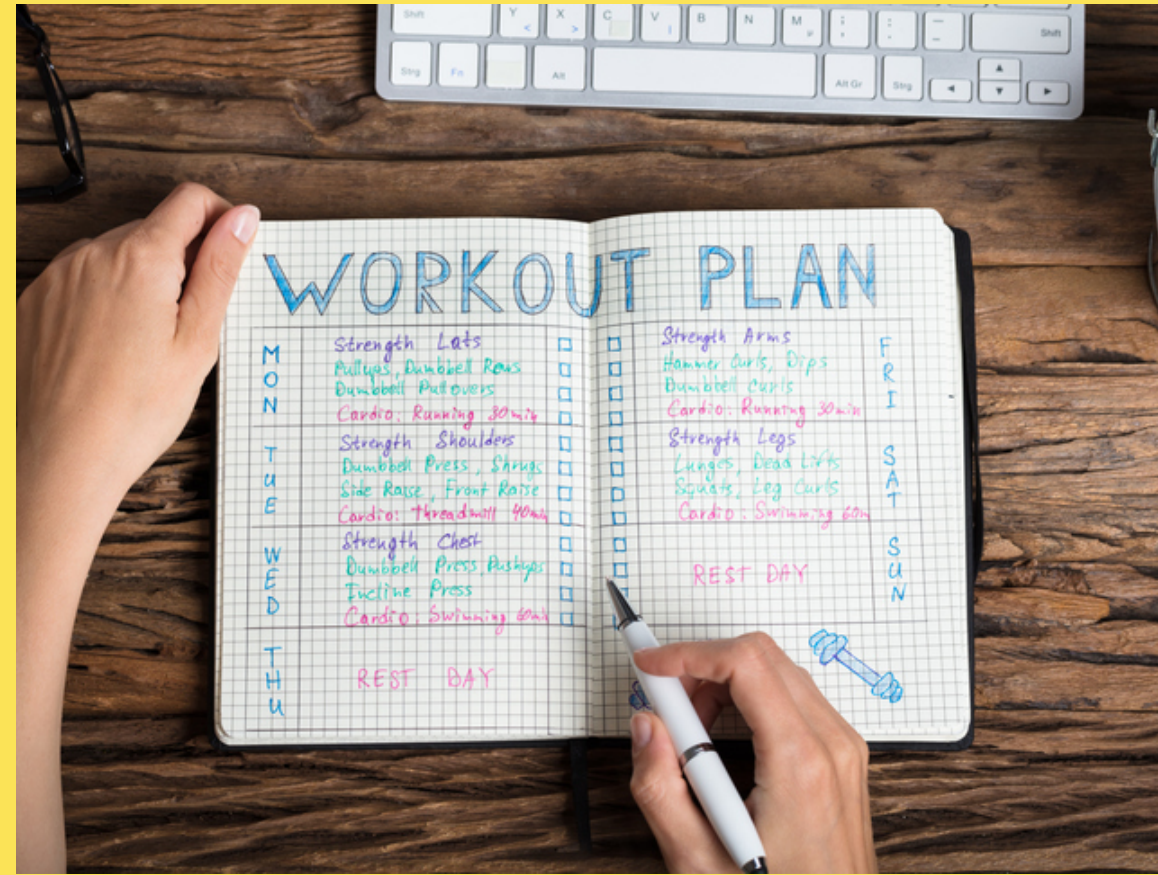 Shift Y X C V B N M ; : - Shift
Strg Fn Alt Alt Gr Strg
WORKOUT PLAN
MON
Strength Lats
Pullups, Dumbbell Rows
Dumbbell Pullovers
Cardio: Running 30min
TUE
Strength Shoulders
Dumbbell Press, Shrugs
Side Raise, Front Raise
Cardio: Threadmill 40min
WED
Strength Chest
Dumbbell Press, Pushups
Incline Press
Cardio: Swimming 60min
THU
REST DAY
Strength Arms
Hammer Curls, Dips
Dumbbell Curls
Cardio: Running 30min
FRI
Strength Legs
Lunges, Dead Lifts
Squats, Leg Curls
Cardio: Swimming 60m
SAT
REST DAY
SUN